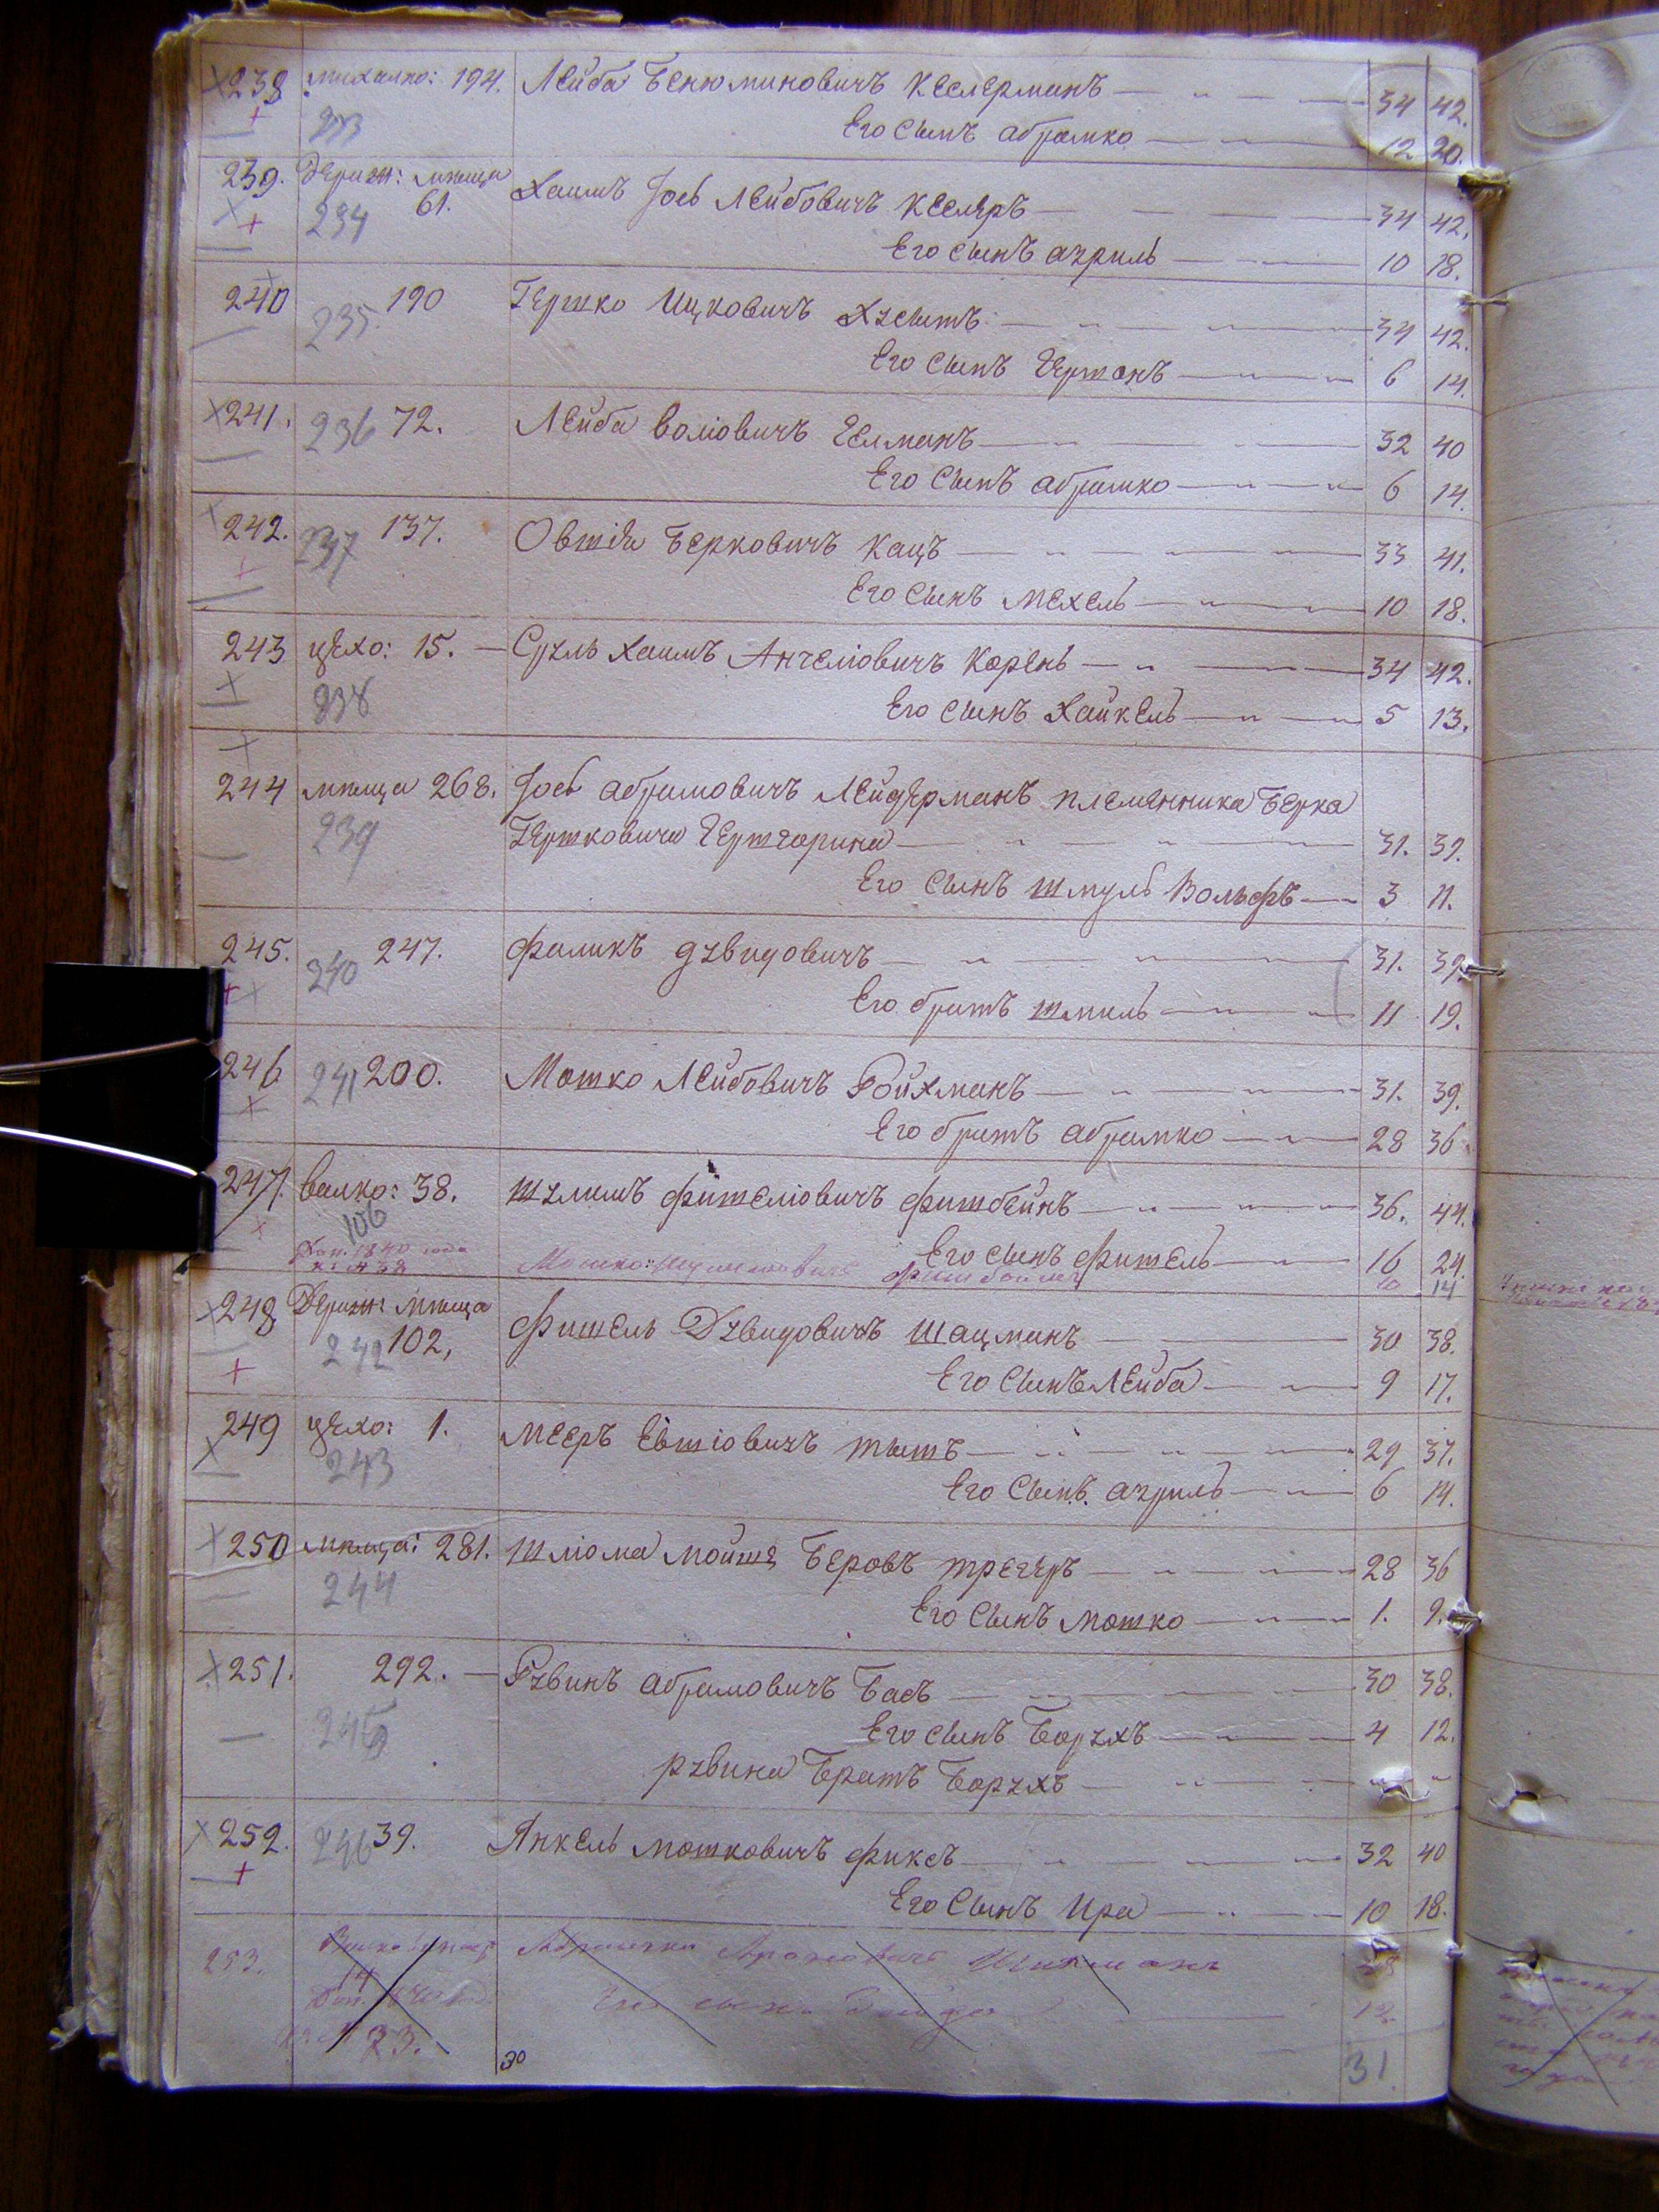 238 михалпо: 194. Лейба Бенюминовичъ Кеслерманъ 34 42.
233 Его сынъ абрамко 12 20.
239. Держ: мѣща 61. Хаимъ Іось Лейбовичъ Кеслеръ 34 42.
234 Его сынъ азриль 10 18.
240 235. 190 Гершко Ицковичъ 34 42.
Его сынъ Гершонъ 6 14.
241. 236 72. Лейба воліовичъ Гелманъ 32 40
Его сынъ абрамко 6 14.
242. 237 137. Овшія Берковичъ Кацъ 33 41.
Его сынъ Мехель 10 18.
243 цехо: 15. Сруль Хаимъ Анчеліовичъ Корень 34 42.
238 Его сынъ Хайкель 5 13.
244 мѣща 268. Іось абрамовичъ Лейдерманъ племенника Берка
239 Гершковича Гершгорина 31. 39.
Его сынъ шмуль Вольфъ 3 11.
245. 240 247. фаликъ дувидовичъ 31. 39.
Его братъ шмиль 11 19.
246 241 200. Мошко Лейбовичъ Ройхманъ 31. 39.
Его братъ абрамко 28 36
247. валко: 38. шулимъ фишеліовичъ фишбейнъ 36. 44.
106
Его сынъ фишель 16 24.
Доп. 1840 года Мошко 10 14
248 Держ: мѣща 102, фишель Дувидовичъ шацманъ 30 38.
242 Его сынъ Лейба 9 17.
249 цехо: 1. Мееръ Евшіовичъ тышъ 29 37.
243 Его сынъ. азриль 6 14.
250 мѣща: 281. шліома мойше Беровъ трегеръ 28 36
244 Его сынъ мошко 1. 9.
251. 292. Рувинъ абрамовичъ Басъ 30 38.
245 Его сынъ Борухъ 4 12.
рувина Братъ Борухъ
252. 246 39. Янкель мошковичъ фиксъ 32 40
Его сынъ Ира 10 18.
253. Ароновичъ
14
Его сынъ 12.
33.
30 31